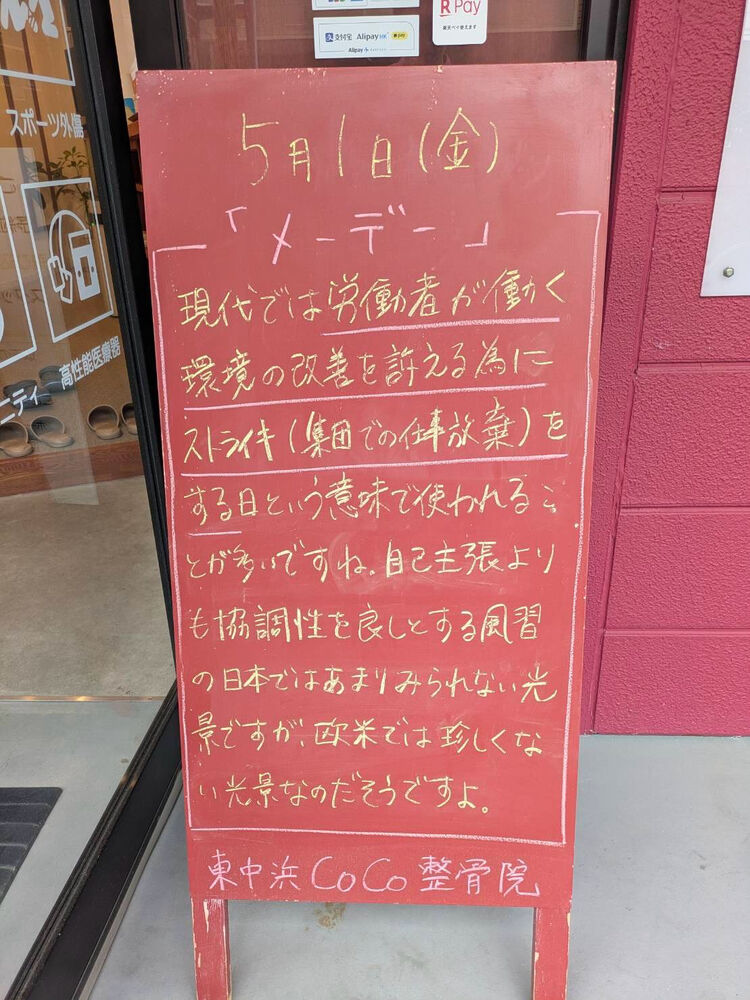 R Pay
楽天ペイ使えます
支付宝 AlipayHK pay
Alipay+
スポーツ外傷
高性能医療器
ニティ
5月1日(金)
「メーデー」
現代では労働者が働く
環境の改善を訴える為に
ストライキ(集団での仕事放棄)を
する日という意味で使われるこ
とが多いですね。自己主張より
も協調性を良しとする風習
の日本ではあまりみられない光
景ですが、欧米では珍しくな
い光景なのだそうですよ。
東中浜CoCo整骨院